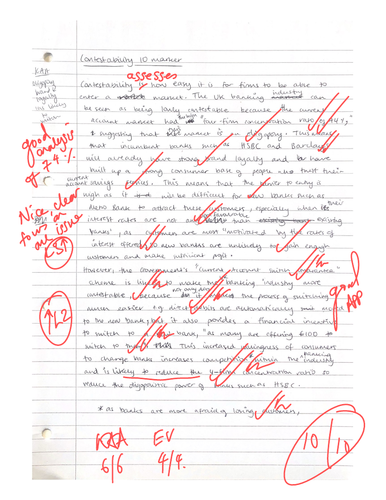 Contestability 10 marker
assesses
Contestability is how easy it is for firms to be able to
enter a market. The UK banking industry can
be seen as being fairly contestable because the current
account market had a four-firm concentration ratio of 74%,
suggesting that market is an oligopoly. This means
that incumbent banks such as HSBC and Barclays
will already have strong brand loyalty and have
built up a strong consumer base of people who trust their
current account services. This means that the barrier to entry is
high as it will be difficult for new banks such as
Metro Bank to attract these customers, especially when their
interest rates are no more favourable than existing
banks', as customers are most "motivated by the rates of
interest offered" so new banks are unlikely to gain enough
customers and make sufficient profit.
However, the Government's "Current Account Switch Guarantee"
scheme is likely to make the banking industry more
contestable because it makes the process of switching
easier e.g. direct debits are automatically moved
to the new bank, but it also provides a financial incentive
to switch to a bank, "as many are offering £100 to
switch to them". This increased willingness of consumers
to change banks increases competition within the banking industry
and is likely to reduce the 4-firm concentration ratio to
reduce the oligopolistic power of banks such as HSBC.
* as banks are more afraid of losing customers,
KAA
good analysis of 74%
Nice clear focus on an issue
L3↑
↑L2
good APP
KAA EV
6/6 4/4
10/10